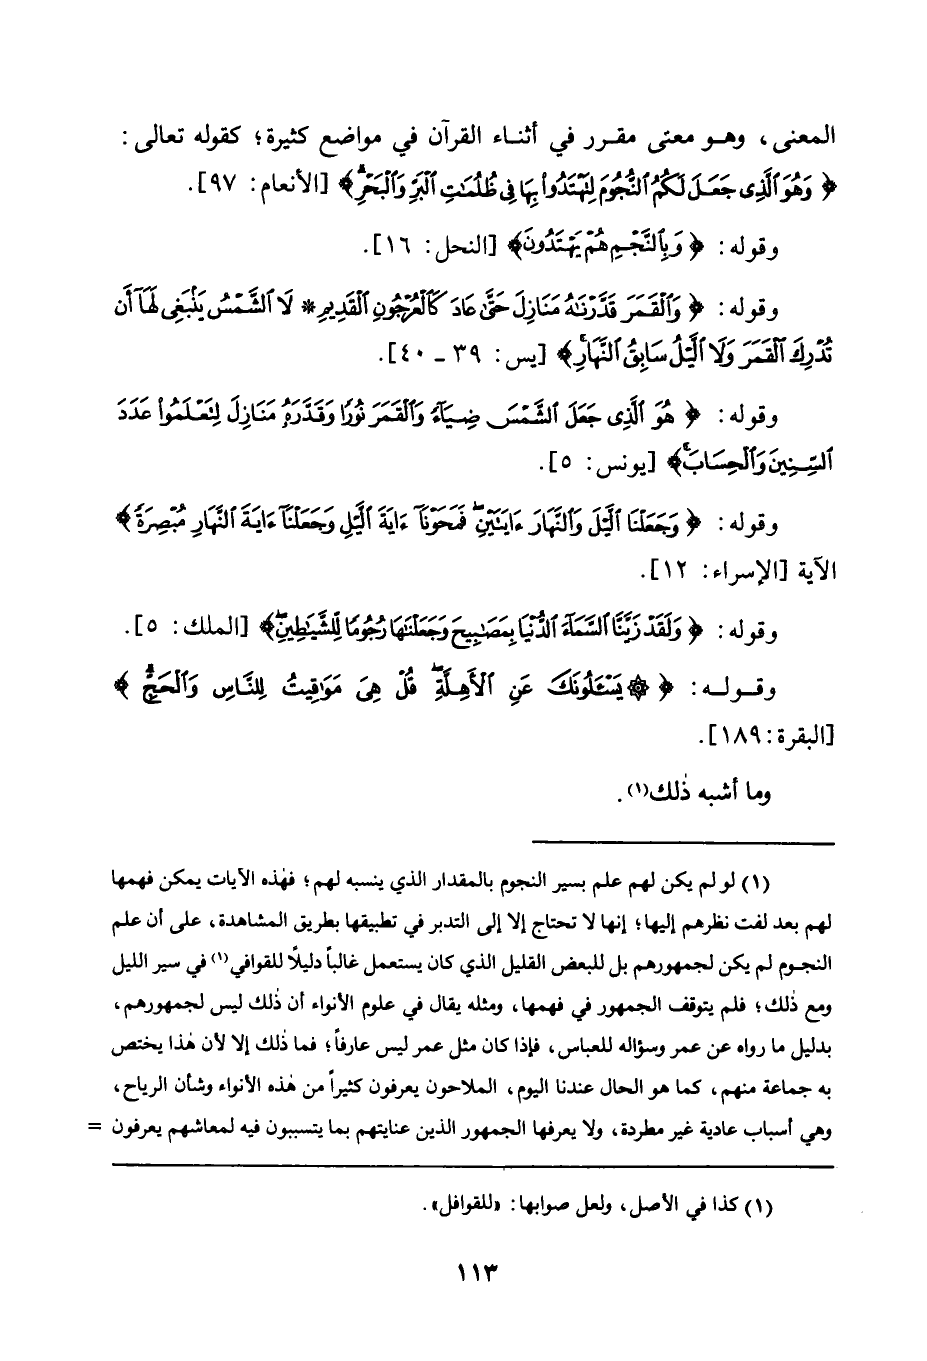 المعنى، وهـو معنى مقـرر في أثنـاء القرآن في مواضع كثيرة؛ كقوله تعالى:
﴿ وَهُوَ ٱلَّذِى جَعَلَ لَكُمُ ٱلنُّجُومَ لِتَهْتَدُوا۟ بِهَا فِى ظُلُمَٰتِ ٱلْبَرِّ وَٱلْبَحْرِ ﴾ [الأنعام: ٩٧].
وقوله: ﴿ وَبِٱلنَّجْمِ هُمْ يَهْتَدُونَ ﴾ [النحل: ١٦].
وقوله: ﴿ وَٱلْقَمَرَ قَدَّرْنَٰهُ مَنَازِلَ حَتَّىٰ عَادَ كَٱلْعُرْجُونِ ٱلْقَدِيمِ * لَا ٱلشَّمْسُ يَنۢبَغِى لَهَآ أَن
تُدْرِكَ ٱلْقَمَرَ وَلَا ٱلَّيْلُ سَابِقُ ٱلنَّهَارِ ﴾ [يس: ٣٩ - ٤٠].
وقوله: ﴿ هُوَ ٱلَّذِى جَعَلَ ٱلشَّمْسَ ضِيَآءً وَٱلْقَمَرَ نُورًا وَقَدَّرَهُۥ مَنَازِلَ لِتَعْلَمُوا۟ عَدَدَ
ٱلسِّنِينَ وَٱلْحِسَابَ ﴾ [يونس: ٥].
وقوله: ﴿ وَجَعَلْنَا ٱلَّيْلَ وَٱلنَّهَارَ ءَايَتَيْنِ فَمَحَوْنَآ ءَايَةَ ٱلَّيْلِ وَجَعَلْنَآ ءَايَةَ ٱلنَّهَارِ مُبْصِرَةً ﴾
الآية [الإسراء: ١٢].
وقوله: ﴿ وَلَقَدْ زَيَّنَّا ٱلسَّمَآءَ ٱلدُّنْيَا بِمَصَٰبِيحَ وَجَعَلْنَٰهَا رُجُومًا لِّلشَّيَٰطِينِ ﴾ [الملك: ٥].
وقـولـه: ﴿ ۞ يَسْـَٔلُونَكَ عَنِ ٱلْأَهِلَّةِ قُلْ هِىَ مَوَٰقِيتُ لِلنَّاسِ وَٱلْحَجِّ ﴾
[البقرة: ١٨٩].
وما أشبه ذٰلك(١).
(١) لو لم يكن لهم علم بسير النجوم بالمقدار الذي ينسبه لهم؛ فهٰذه الآيات يمكن فهمها
لهم بعد لفت نظرهم إليها؛ إنها لا تحتاج إلا إلى التدبر في تطبيقها بطريق المشاهدة، على أن علم
النجـوم لم يكن لجمهورهم بل للبعض القليل الذي كان يستعمل غالباً دليلاً للقوافي(١) في سير الليل
ومع ذٰلك؛ فلم يتوقف الجمهور في فهمها، ومثله يقال في علوم الأنواء أن ذٰلك ليس لجمهورهم،
بدليل ما رواه عن عمر وسؤاله للعباس، فإذا كان مثل عمر ليس عارفاً؛ فما ذٰلك إلا لأن هٰذا يختص
به جماعة منهم، كما هو الحال عندنا اليوم، الملاحون يعرفون كثيراً من هٰذه الأنواء وشأن الرياح،
وهي أسباب عادية غير مطردة، ولا يعرفها الجمهور الذين عنايتهم بما يتسببون فيه لمعاشهم يعرفون =
(١) كذا في الأصل، ولعل صوابها: «للقوافل».
١١٣